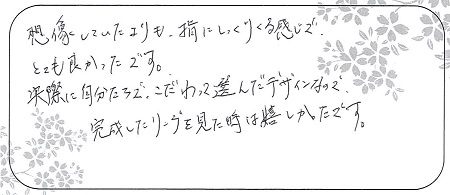 想像していたよりも、指にしっくりくる感じで、
とても良かったです。
実際に自分たちで、こだわって選んだデザインなので、
完成したリングを見た時は嬉しかったです。